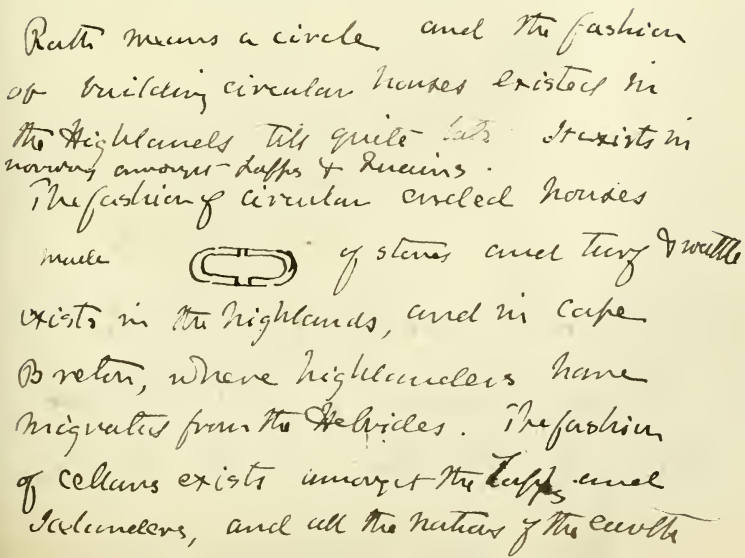 Rath means a circle and the fashion
of building circular houses existed in
the Highlands till quite late It exists in
norway amongst Lapps & Quains.
The fashion of circular ended houses
made of stones and turf & wattle
exists in the highlands, and in Cape
Breton, where highlanders have
migrated from the Hebrides. The fashion
of cellars exists amongst the Lapps and
Icelanders, and all the nations of the earth